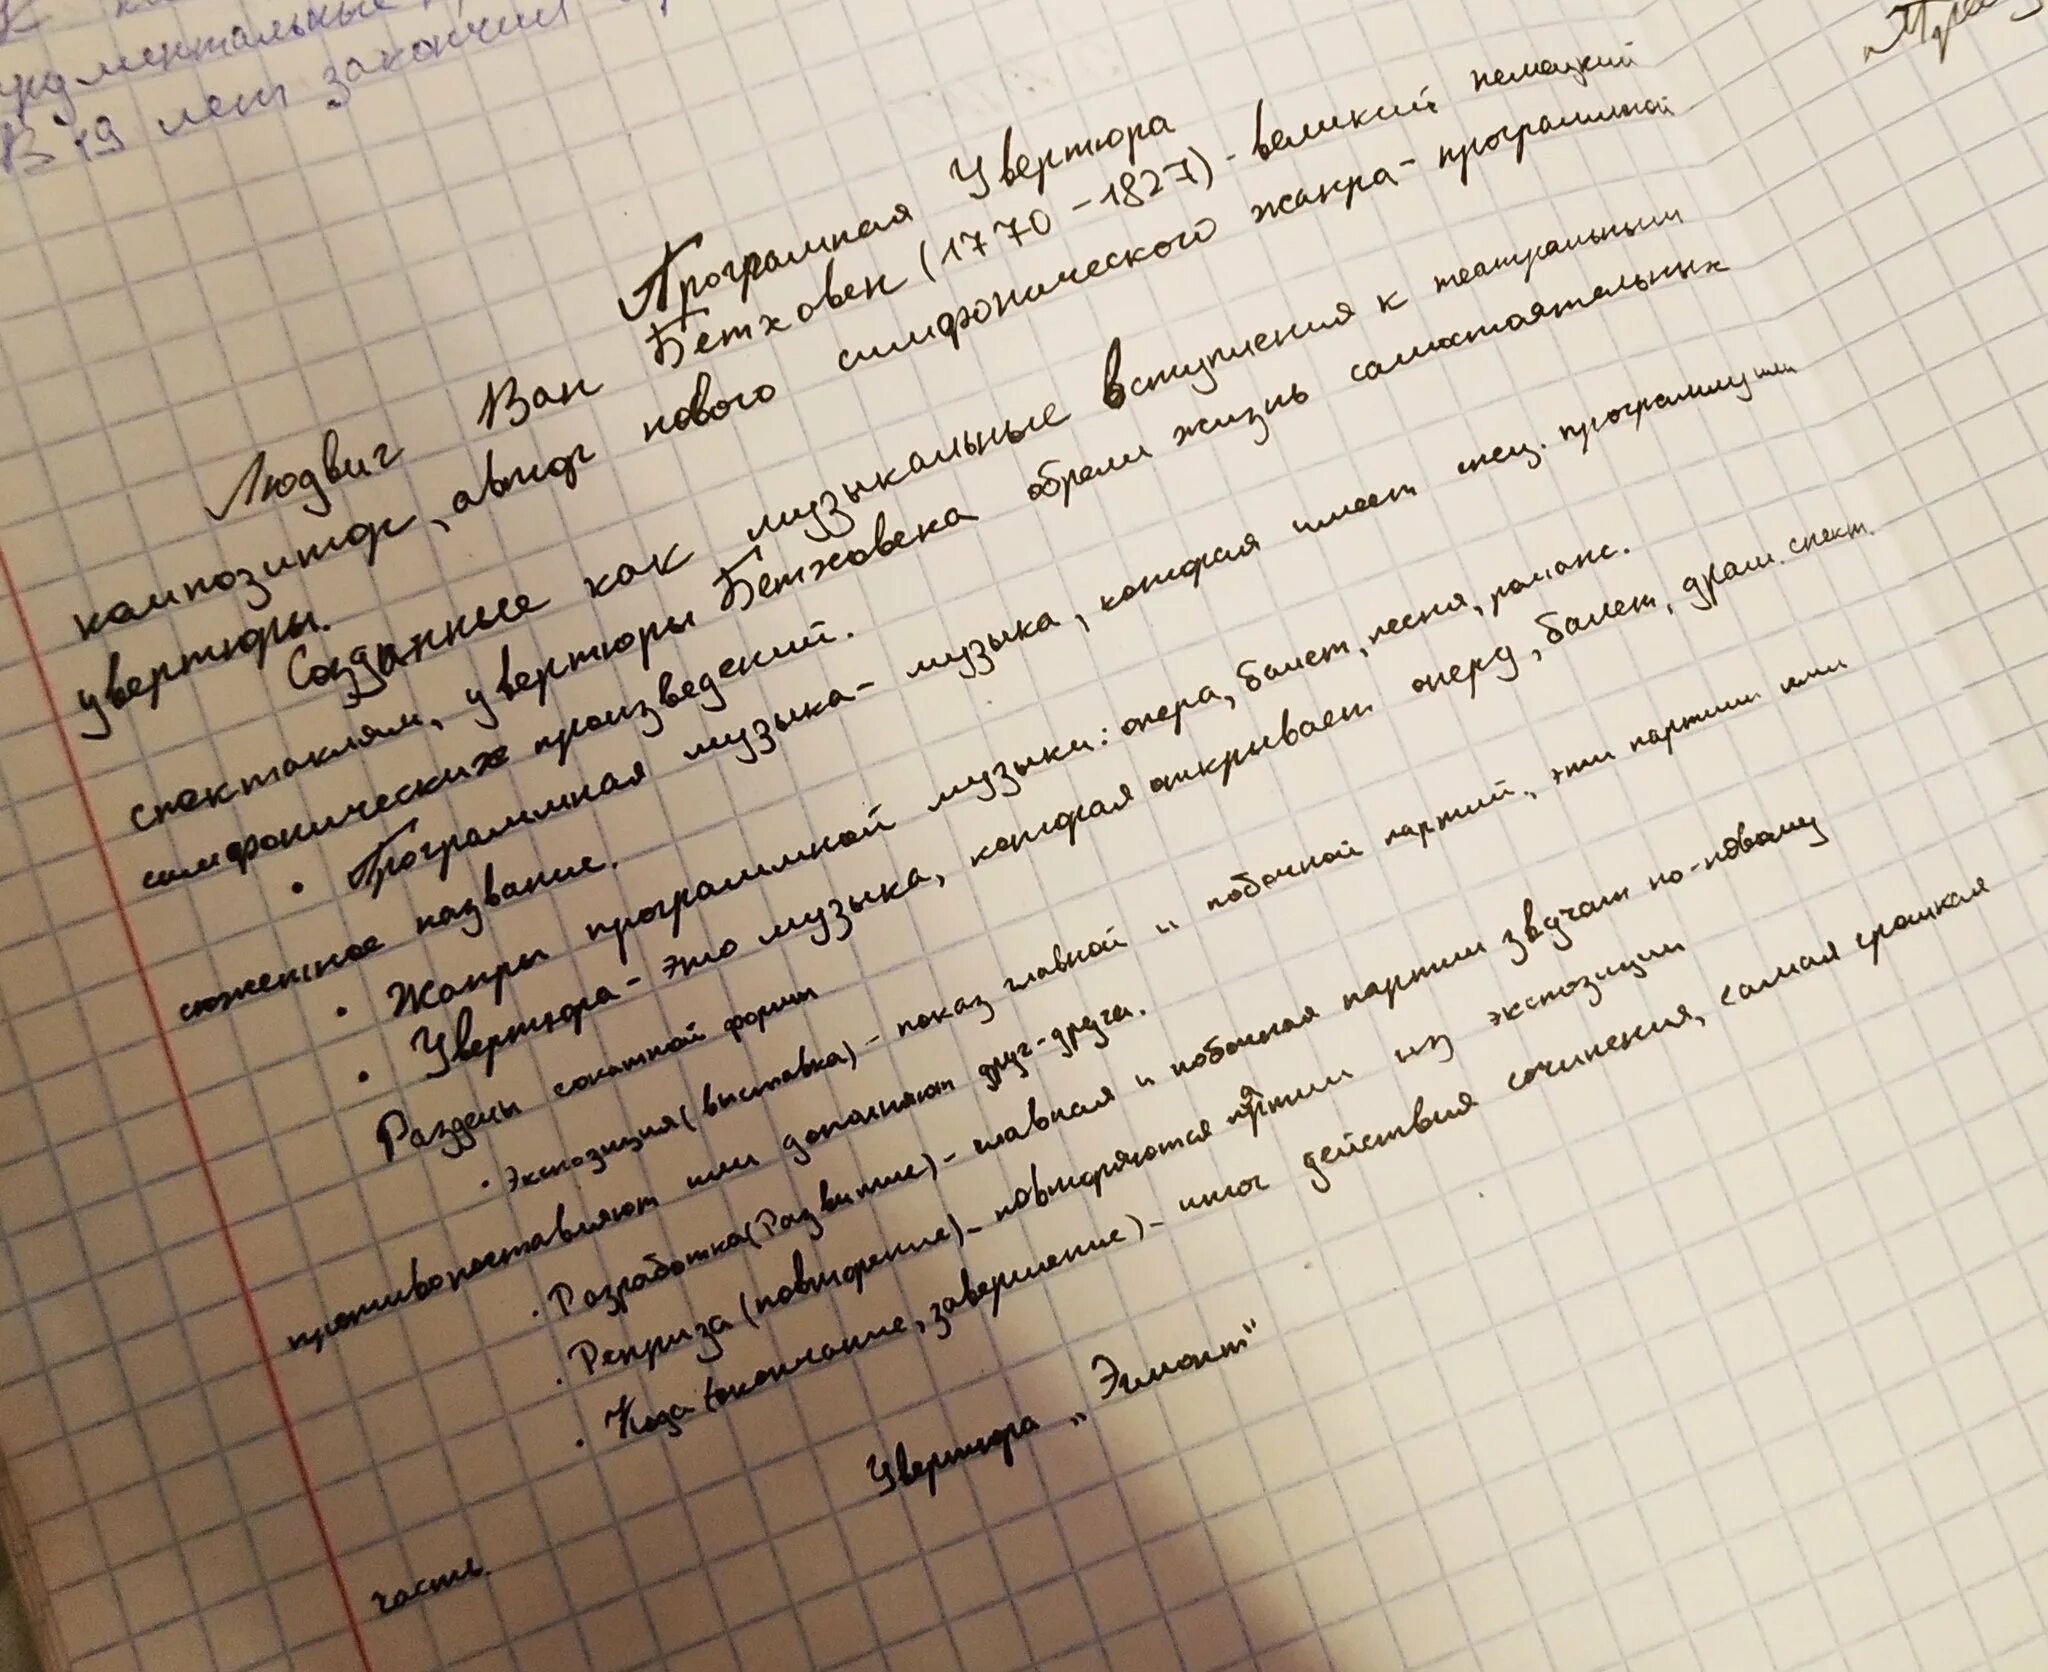 В 19 лет закончил
Програмная Увертюра
Людвиг Ван Бетховен (1770-1827) - великий немецкий
композитор, автор нового симфонического жанра - программной
увертюры.
Созданные как музыкальные вступления к театральным
спектаклям, увертюры Бетховена обрели жизнь самостоятельных
симфонических произведений.
• Программная музыка - музыка, которая имеет спец. программу или
сюжетное название.
• Жанры программной музыки: опера, балет, песня, романс.
• Увертюра - это музыка, которая открывает оперу, балет, драм. спект.
Разделы сонатной формы
• Экспозиция (выставка) - показ главной и побочной партий, эти партии или
противопоставляют или дополняют друг-друга.
• Разработка (Развитие) - главная и побочная партии звучат по-новому
• Реприза (повторение) - повторяются партии из экспозиции
• Кода (окончание, завершение) - итог действия сочинения, самая громкая
часть.
Увертюра „Эгмонт"